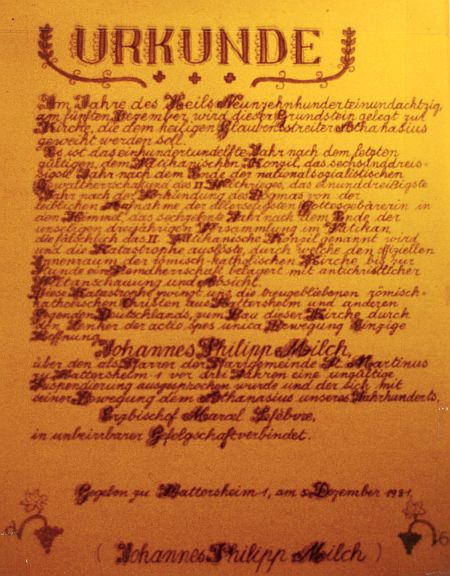 URKUNDE
Im Jahre des Heils Neunzehnhunderteinundachtzig,
am fünften Dezember, wird dieser Grundstein gelegt zur
Kirche, die dem heiligen Glaubensstreiter Athanasius
geweiht werden soll.
Es ist das einhundertundelfte Jahr nach dem letzten
gültigen, dem I. Vatikanischen Konzil, das sechsunddreis-
sigste Jahr nach dem Ende der nationalsozialistischen
Gewaltherrschaft und des II. Weltkrieges, das einunddreißigste
Jahr nach der Verkündung des Dogmas von der
leiblichen Aufnahme der allerseligsten Gottesgebärerin in
den Himmel, das sechzehnte Jahr nach dem Ende der
unseligen dreijährigen Versammlung im Vatikan,
die fälschlich das II. Vatikanische Konzil genannt wird
und die Katastrophe auslöste, durch welche den offiziellen
Innenraum der römisch-katholischen Kirche, bis zur
Stunde eine Fremdherrschaft belagert mit antichristlicher
Weltanschauung und Absicht.
Diese Katastrophe zwingt uns, die treugebliebenen römisch-
katholischen Christen aus Hattersheim und anderen
Gegenden Deutschlands, zum Bau dieser Kirche durch
den Lenker der actio spes unica Bewegung Einzige
Hoffnung
Johannes Philipp Milch,
über den als Pfarrer der Pfarrgemeinde St. Martinus
zu Hattersheim 1 vor drei Jahren eine ungültige
Suspendierung ausgesprochen wurde und der sich mit
seiner Bewegung dem Athanasius unseres Jahrhunderts,
Erzbischof Marcel Lefèbvre,
in unbeirrbarer Gefolgschaft verbindet.
Gegeben zu Hattersheim 1, am 5. Dezember 1981.
(Johannes Philipp Milch)